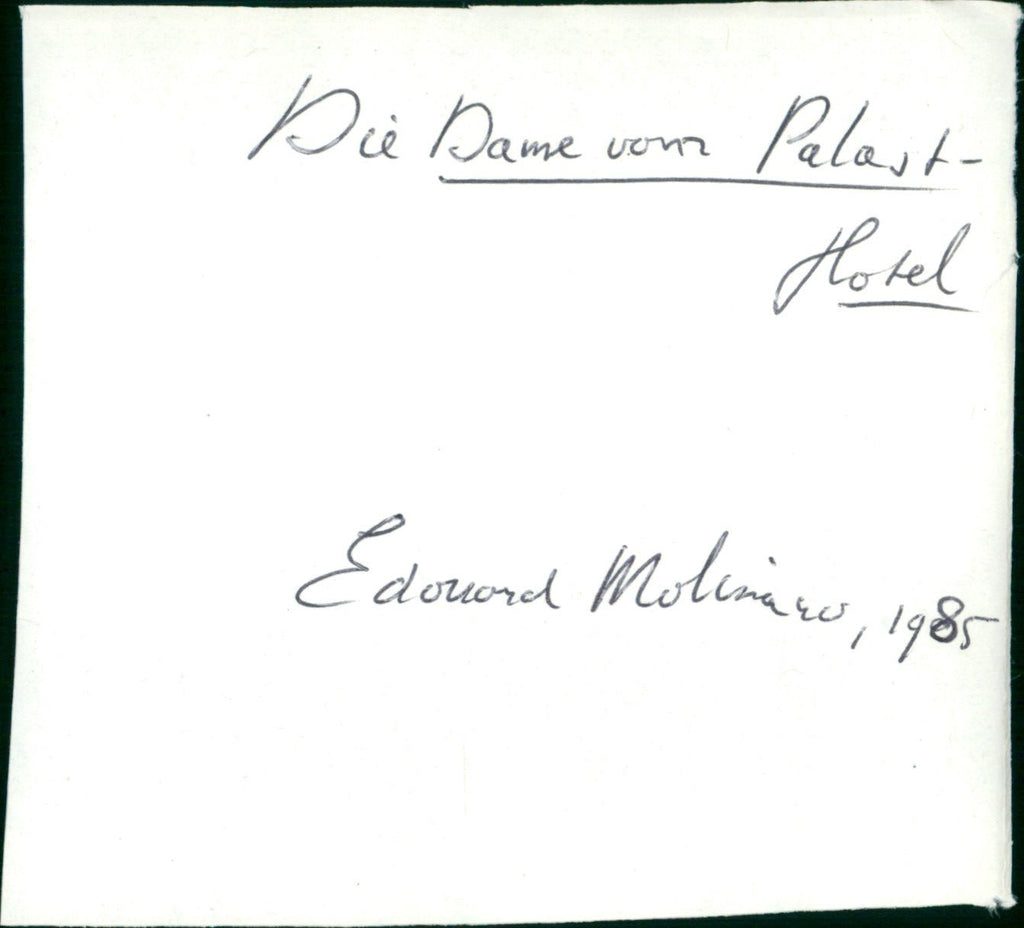 Die Dame vom Palast-
Hotel
Edouard Molinaro, 1985